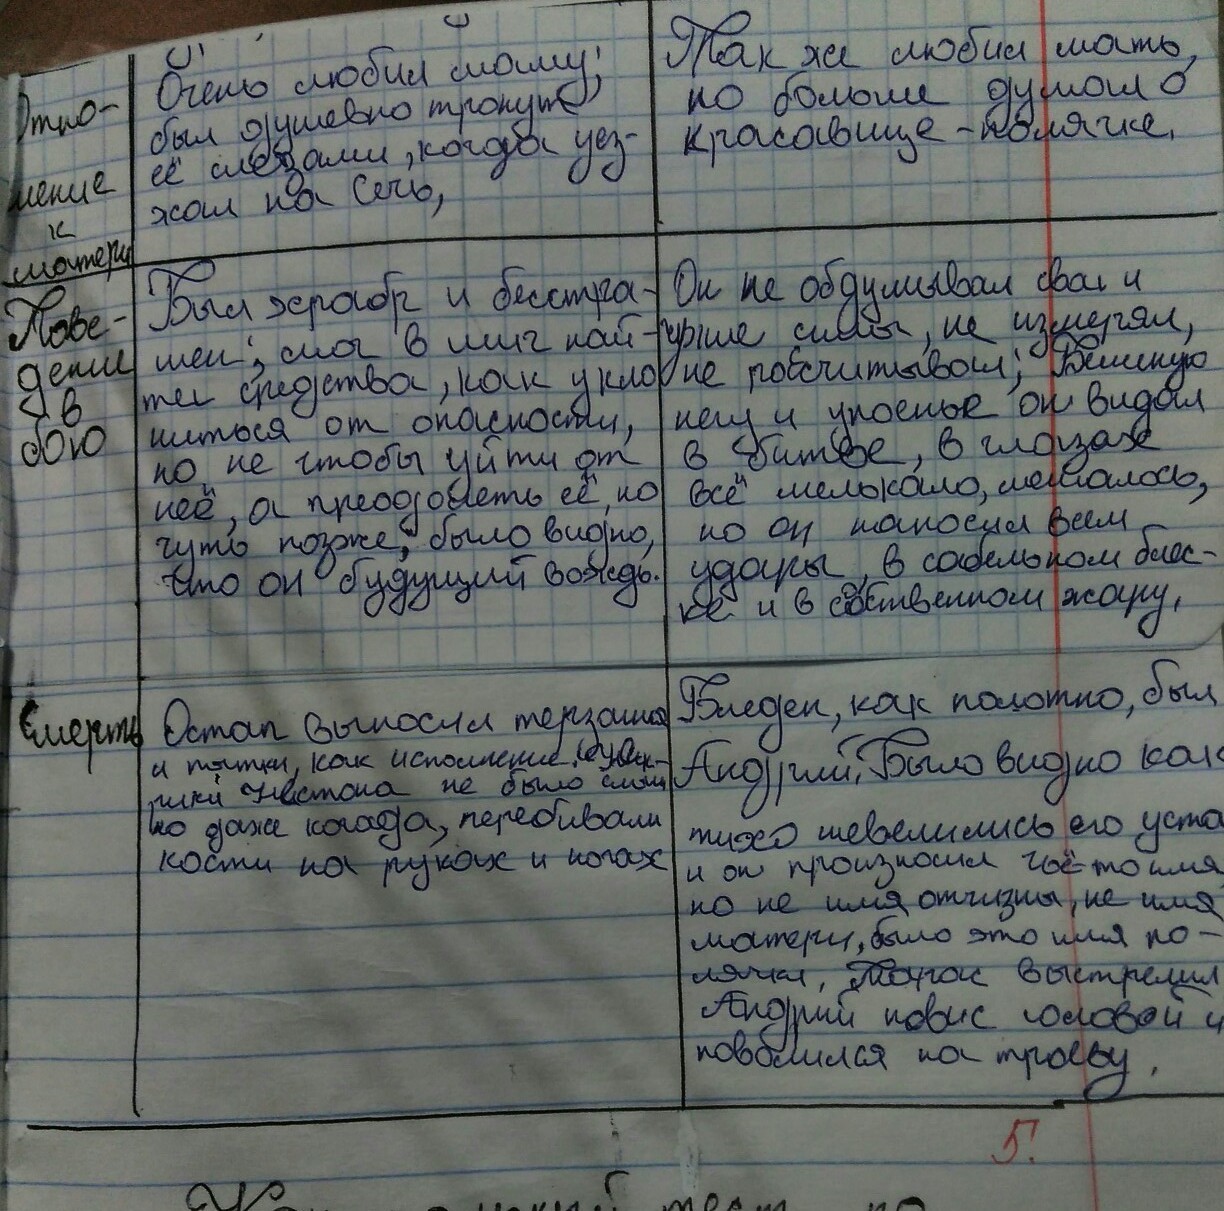 Отно-
шение
к
матери
Очень любил маму,
был душевно тронут
её слезами, когда уез-
жал на Сечь,
Так же любил мать,
но больше думал о
красавице-полячке.
Пове-
дение
в
бою
Был храбр и бесстра-
шен; смог в миг най-
ти средства, как укло
ниться от опасности,
но не чтобы уйти от
неё, а преодолеть её, но
чуть позже, было видно,
что он будущий вождь.
Он не обдумывал свои и
чужие силы, не измерял,
не рассчитывал; Бешеную
негу и упоенье он видал
в битве, в глазах
всё мелькало, мешалось,
но он наносил всем
удары, в сабельном блес-
ке и в собственном жару,
Смерть
Остап выносил терзания
и пытки, как исполнение,
не было
но даже когада, перебивали
кости на руках и ногах
Бледен, как полотно, был
Андрий, Было видно как
тихо шевелились его уста
и он произносил чьё-то имя
но не имя отчизны, не имя
матери, было это имя по-
лячки, Тарас выстрелил
Андрий повис головой и
повалился на траву.
5.
тест по